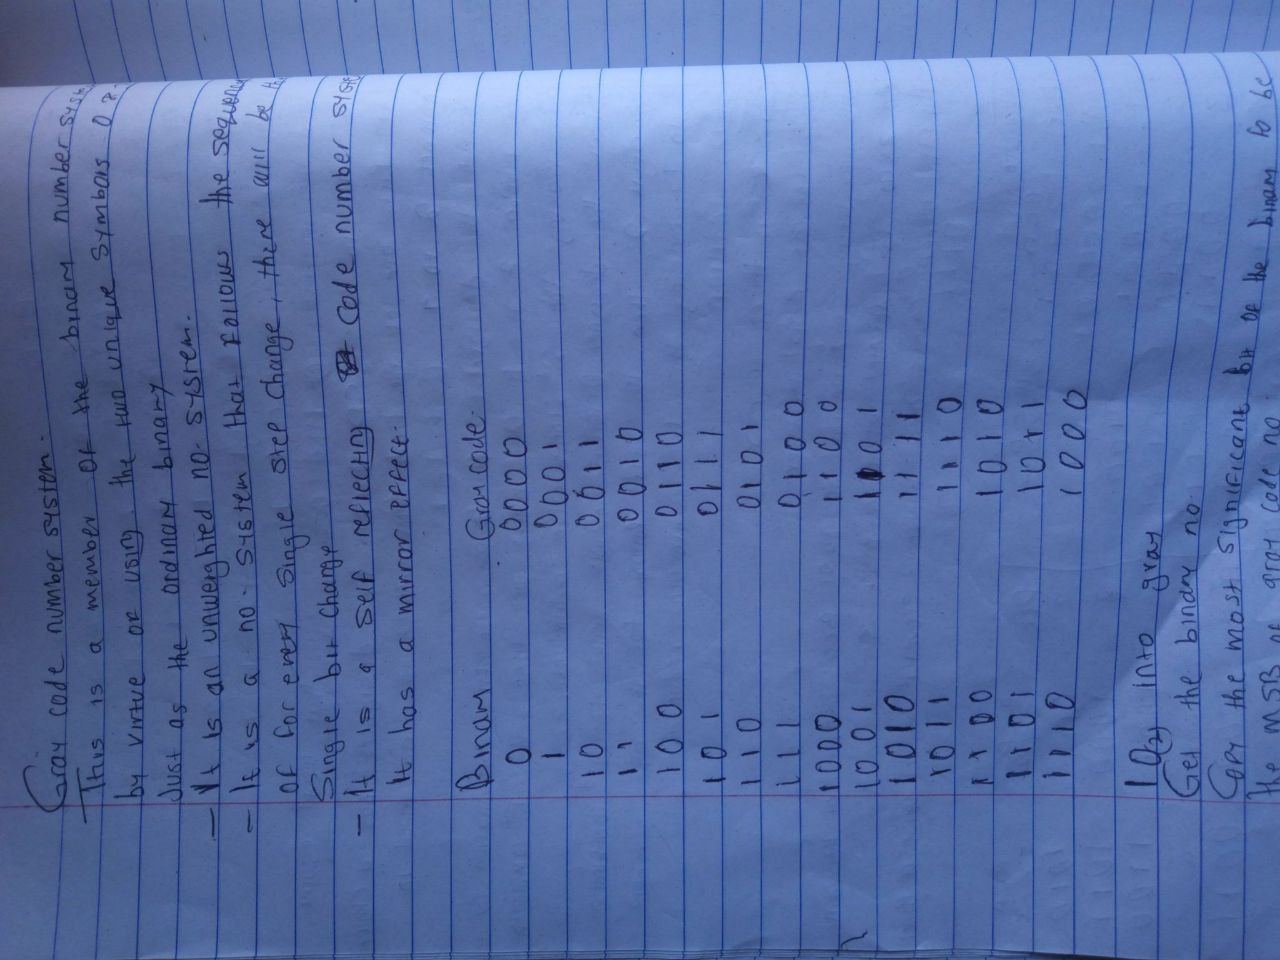 Gray code number system.
This is a member of the binary number syst
by virtue of using the two unique symbols 0 &
Just as the ordinary binary
- It is an unweighted no. system.
- It is a no. system that follows the sequenc
of for every single step change, there will be th
Single bit change
- It is a self reflecting code number syste
It has a mirror effect.
Binary Gray code.
0 0000
1 0001
10 0011
11 0010
100 0110
101 0111
110 0101
111 0100
1000 1100
1001 1101
1010 1111
1011 1110
1100 1010
1101 1011
1110 1000
10(2) into gray
Get the binary no
Copy the most significant bit of the binary to be
the MSB of gray code no.